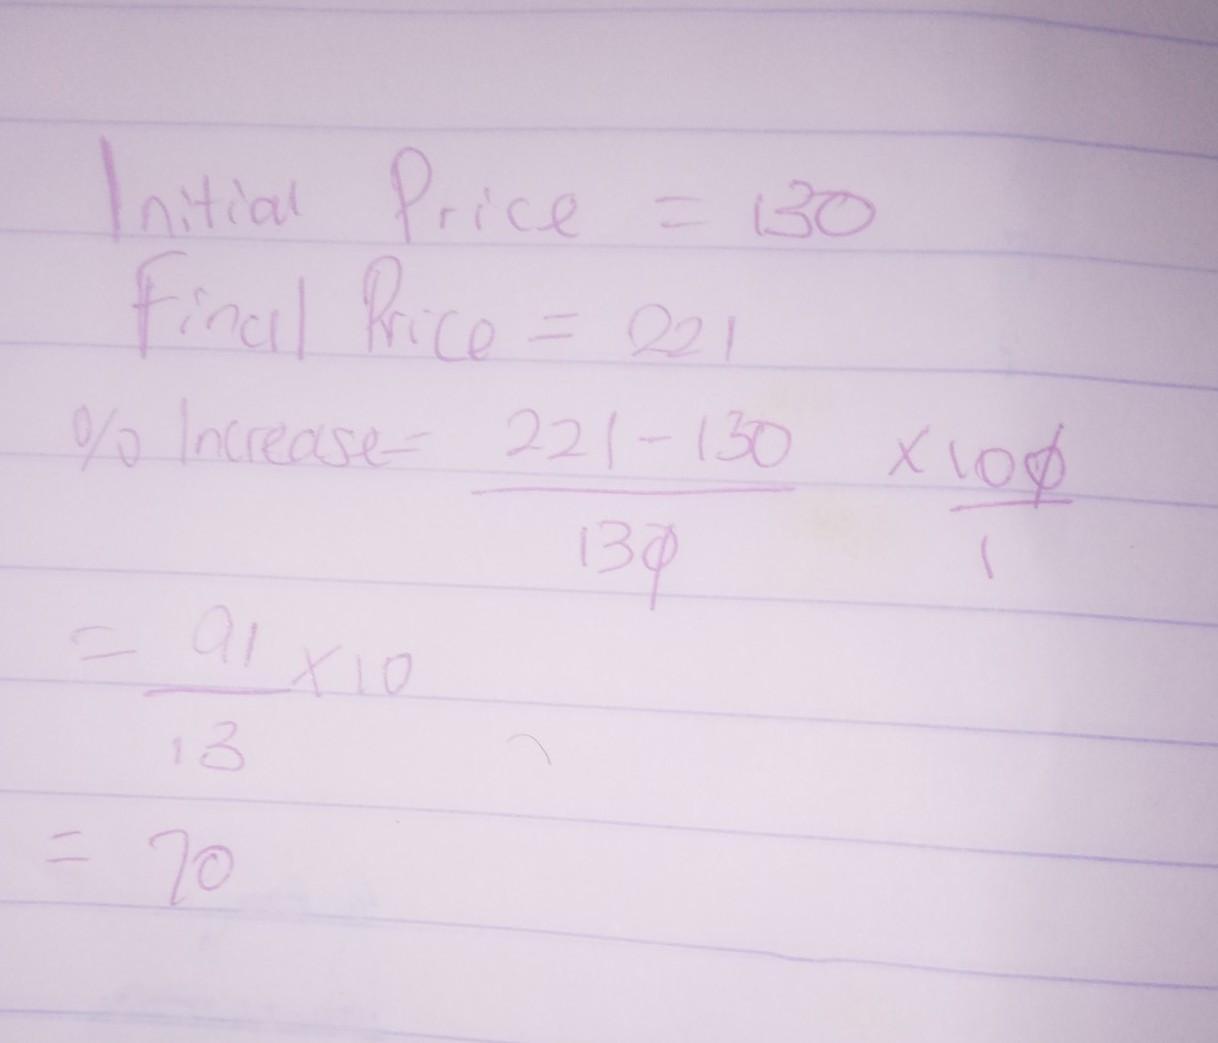 Initial Price = 130
Final Price = 221
% Increase = 221 - 130 / 130 × 100 / 1
= 91 / 13 × 10
= 70